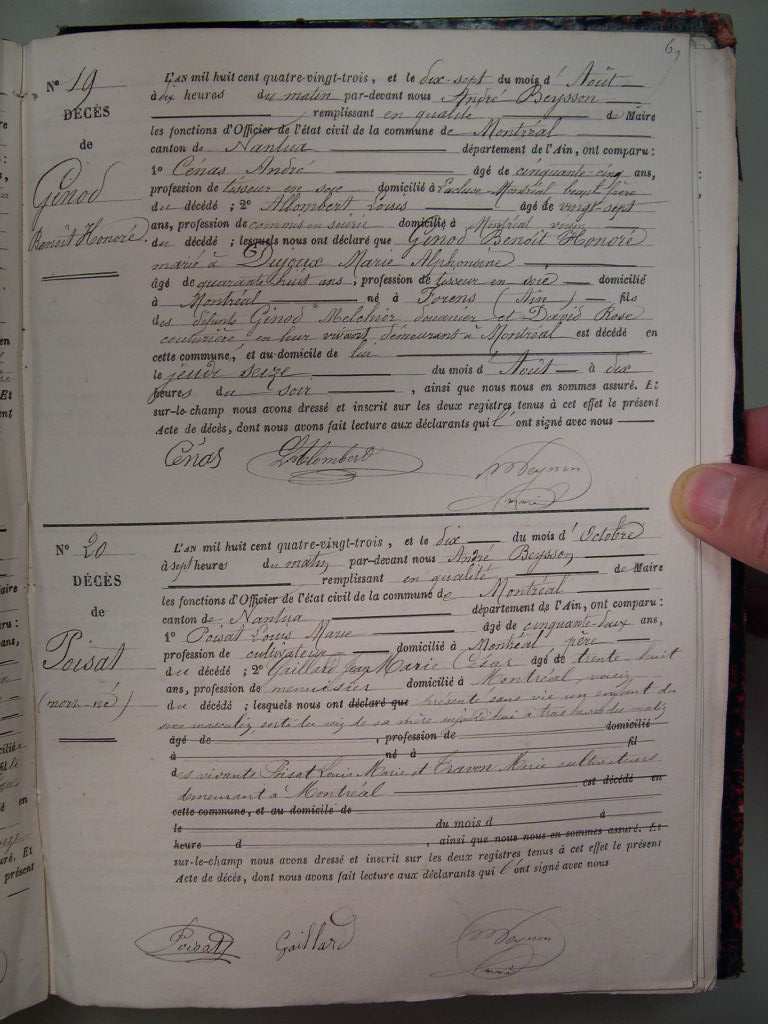 67
N° 19
DÉCÈS
de
Genod
Benoît Honoré.
L'AN mil huit cent quatre-vingt-trois, et le dix-sept du mois d'Août
à dix heures du matin par-devant nous André Beysson
remplissant en qualité de Maire
les fonctions d'Officier de l'état civil de la commune de Montréal
canton de Nantua département de l'Ain, ont comparu :
1° Cénas André âgé de cinquante-cinq ans,
profession de tisseur en soie domicilié à Montréal
du décédé ; 2° Allombert Louis âgé de vingt-sept
ans, profession de commis en soierie domicilié à Montréal voisin
du décédé ; lesquels nous ont déclaré que Genod Benoît Honoré
marié à Dujoux Marie Alphonsine
âgé de quarante huit ans, profession de tisseur en soie domicilié
à Montréal né à Forens (Ain) fils
des défunts Genod Melchior douanier et David Rose
couturière en leur vivant demeurant à Montréal est décédé en
cette commune, et au domicile de lui
le jeudi seize du mois d'Août à dix
heures du soir, ainsi que nous nous en sommes assuré. Et
sur-le-champ nous avons dressé et inscrit sur les deux registres tenus à cet effet le présent
Acte de décès, dont nous avons fait lecture aux déclarants qui l'ont signé avec nous
Cénas Allombert
N° 20
DÉCÈS
de
Poisat
(mort-né)
L'AN mil huit cent quatre-vingt-trois, et le dix du mois d'Octobre
à sept heures du matin par-devant nous André Beysson
remplissant en qualité de Maire
les fonctions d'Officier de l'état civil de la commune de Montréal
canton de Nantua département de l'Ain, ont comparu :
1° Poisat Louis Marie âgé de cinquante-deux ans,
profession de cultivateur domicilié à Montréal père
du décédé ; 2° Gaillard Jean Marie César âgé de trente huit
ans, profession de menuisier domicilié à Montréal, voisin
du décédé ; lesquels nous ont déclaré que présenté sans vie un enfant du
sexe masculin sorti du sein de sa mère aujourd'hui à trois heures du matin
âgé de , profession de domicilié
à né à fil
des vivants Poisat Louis Marie et Travon Marie cultivateurs
demeurant à Montréal est décédé en
cette commune, et au domicile de
le du mois d à
heure d , ainsi que nous nous en sommes assuré. Et
sur-le-champ nous avons dressé et inscrit sur les deux registres tenus à cet effet le présent
Acte de décès, dont nous avons fait lecture aux déclarants qui l'ont signé avec nous
Poisat Gaillard